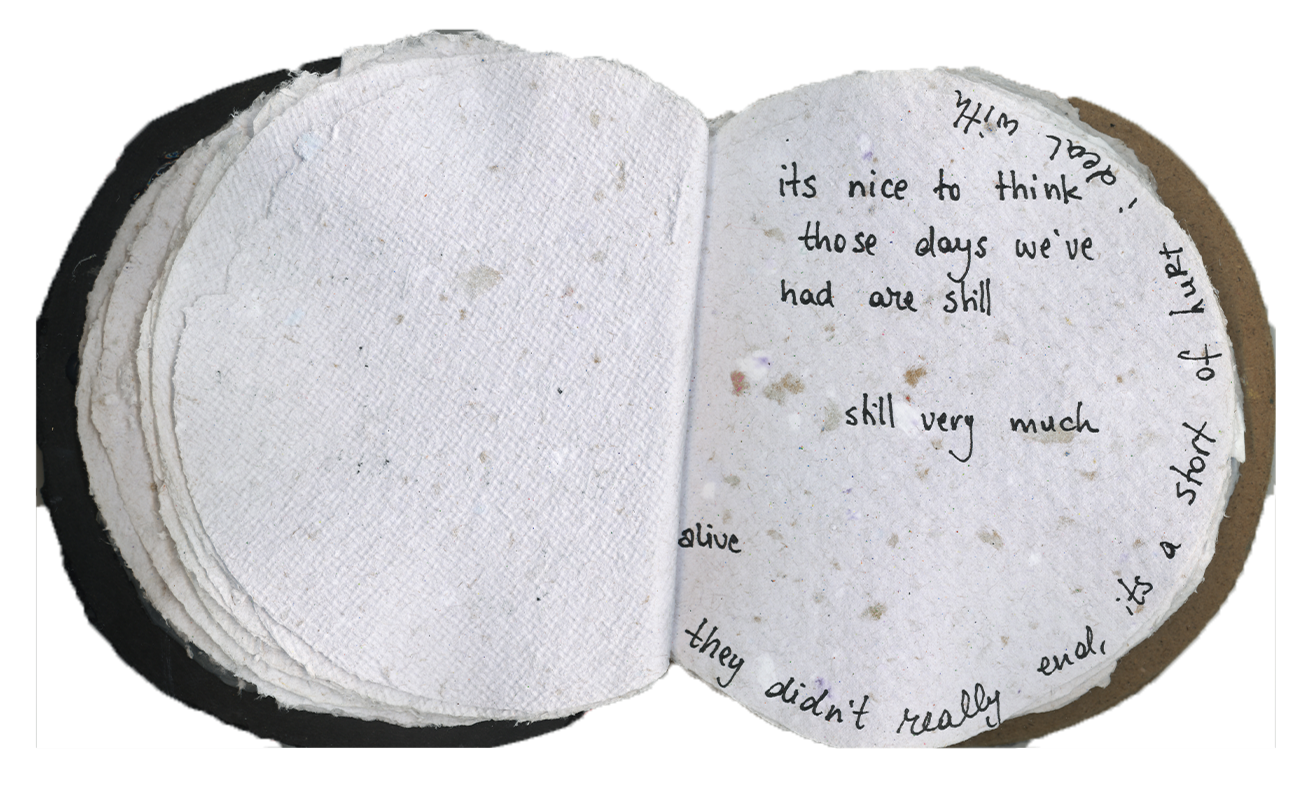 its nice to think
those days we've
had are still
still very much
alive
they didn't really end, its a story of hurt i deal with